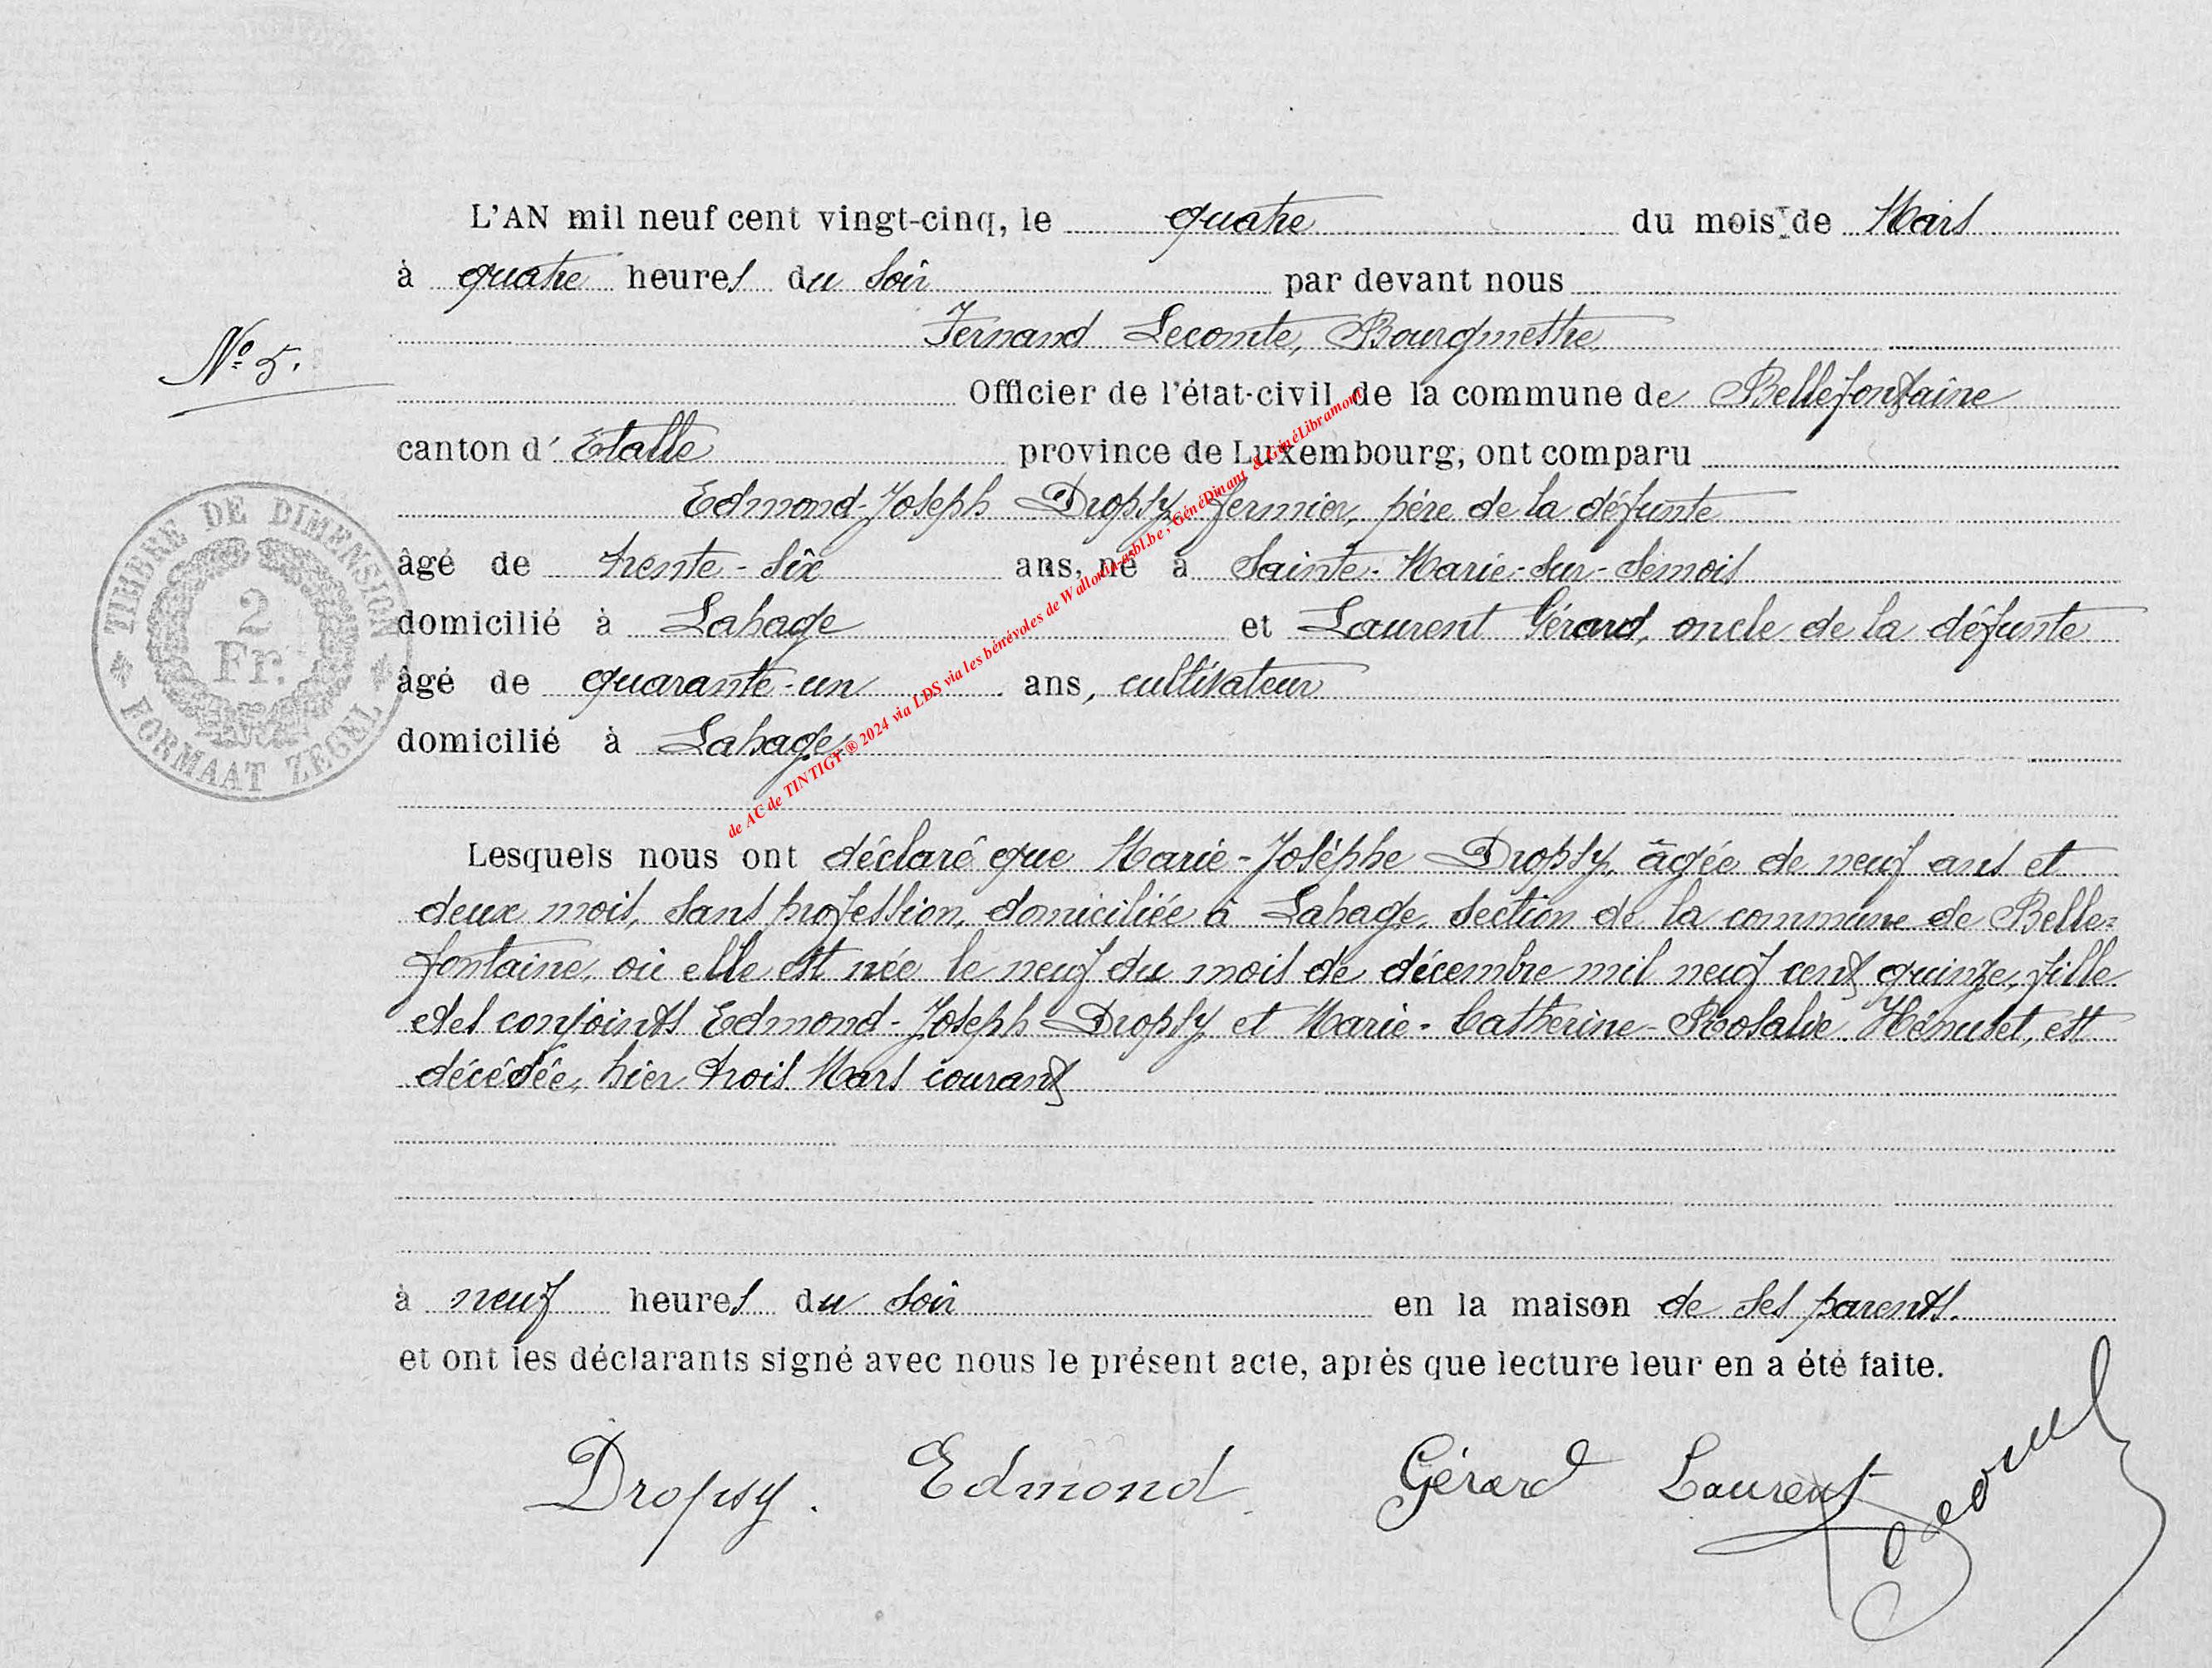 L'AN mil neuf cent vingt-cinq, le quatre du mois de Mars
à quatre heures du soir par devant nous
Fernand Lecomte, Bourgmestre
N° 5.
Officier de l'état-civil de la commune de Bellefontaine
canton d' Etalle province de Luxembourg, ont comparu
Edmond-Joseph Dropsy, fermier, père de la défunte
âgé de trente-six ans, né à Sainte-Marie-sur-Semois
domicilié à Lahage et Laurent Gérard, oncle de la défunte
âgé de quarante-un ans, cultivateur
domicilié à Lahage
TIMBRE DE DIMENSION
2
Fr.
FORMAAT ZEGEL
de AC de TINTIGY® 2024 via LDS via les bénévoles de Wallonia asbl.be ; GénéDinant & GénéLibramont
Lesquels nous ont déclaré que Marie-Joséphe Dropsy, âgée de neuf ans et
deux mois, sans profession, domiciliée à Lahage, section de la commune de Belle=
fontaine, où elle est née le neuf du mois de décembre mil neuf cent quinze, fille
des conjoints Edmond-Joseph Dropsy et Marie-Catherine-Rosalie Hénuset, est
décédée, hier trois Mars courant
à neuf heures du soir en la maison de ses parents.
et ont les déclarants signé avec nous le présent acte, après que lecture leur en a été faite.
Dropsy. Edmond Gérard Laurent